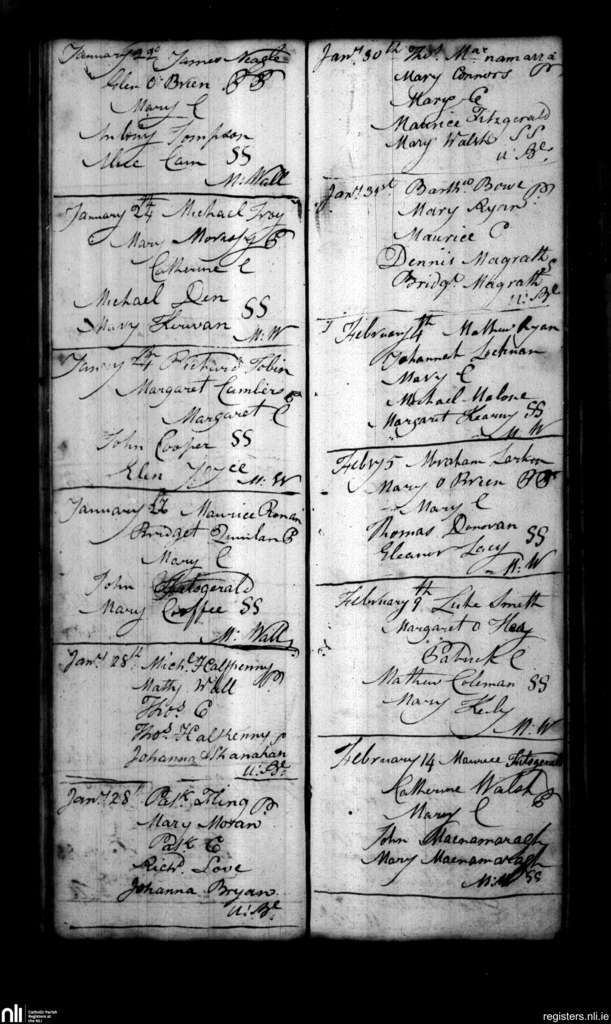 January 22d James Neagle
Helen O Brien P P
Mary C
Antony Tompson
Alice Cain SS
M: Wall
January 24th Michael Troy
Mary P
Catherine C
Michael Den
Mary Kervan SS
M: W
January 24th Richard Tobin
Margaret P
Margaret C
John Cooper SS
Elen Joyce M: W
January 27 Maurice Ronan
Bridget Quinlan P
Mary C
John Fitzgerald
Mary SS
M: Wall
Janry 28th Michl Halpenny
Mathy Wall P
Thos C
Thos Halpenny
Johanna Shanahan
Janry 28th Patk Fling P
Mary Moran
Patk C
Richd Love
Johanna Bryan
Janry 30th Thos Macnamara
Mary Connors P
Mary C
Maurice Fitzgerald
Mary Walsh SS
Janry 31st Bartho Bowe P
Mary Ryan
Maurice C
Dennis Magrath
Bridgt Magrath S
February 4th Mathew Ryan
Johannah
Mary C
Michael Malone
Margaret Kearny SS
M W
Febry 5 Abraham Larkin
Mary O Brien P P
Mary C
Thomas Donovan
Eleanor Lacy SS
M: W
February 9th Luke Smith
Margaret O Hea
Patrick C
Mathew Coleman SS
Mary
M: W
February 14 Maurice Fitzgerald
Catherine Walsh P
Mary C
John Macnamaragh
Mary Macnamaragh
M: W SS
nli
Catholic Parish
Registers at
the NLI
registers.nli.ie